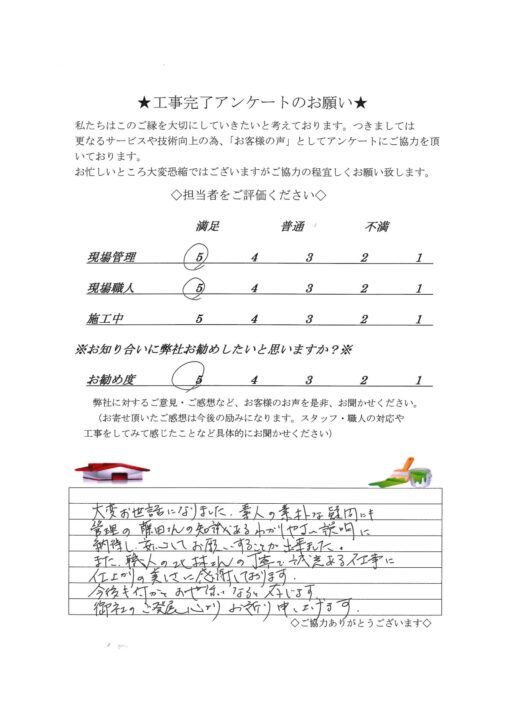 ★工事完了アンケートのお願い★
私たちはこのご縁を大切にしていきたいと考えております。つきましては
更なるサービスや技術向上の為、「お客様の声」としてアンケートにご協力を頂
いております。
お忙しいところ大変恐縮ではございますがご協力の程宜しくお願い致します。
◇担当者をご評価ください◇
満足 普通 不満
現場管理 5 4 3 2 1
現場職人 5 4 3 2 1
施工中 5 4 3 2 1
※お知り合いに弊社お勧めしたいと思いますか？※
お勧め度 5 4 3 2 1
弊社に対するご意見・ご感想など、お客様のお声を是非、お聞かせください。
（お寄せ頂いたご感想は今後の励みになります。スタッフ・職人の対応や
工事をしてみて感じたことなど具体的にお聞かせください）
大変お世話になりました。素人の素朴な疑問にも
管理の藤田さんの知識あるわかりやすい説明に
納得し、安心してお願いすることが出来ました。
また、職人の林さんの丁寧で誠意ある仕事に
仕上がりの美しさに感謝しております。
今後も何かとお世話になると存じます
御社のご発展心よりお祈り申し上げます。
◇ご協力ありがとうございます◇